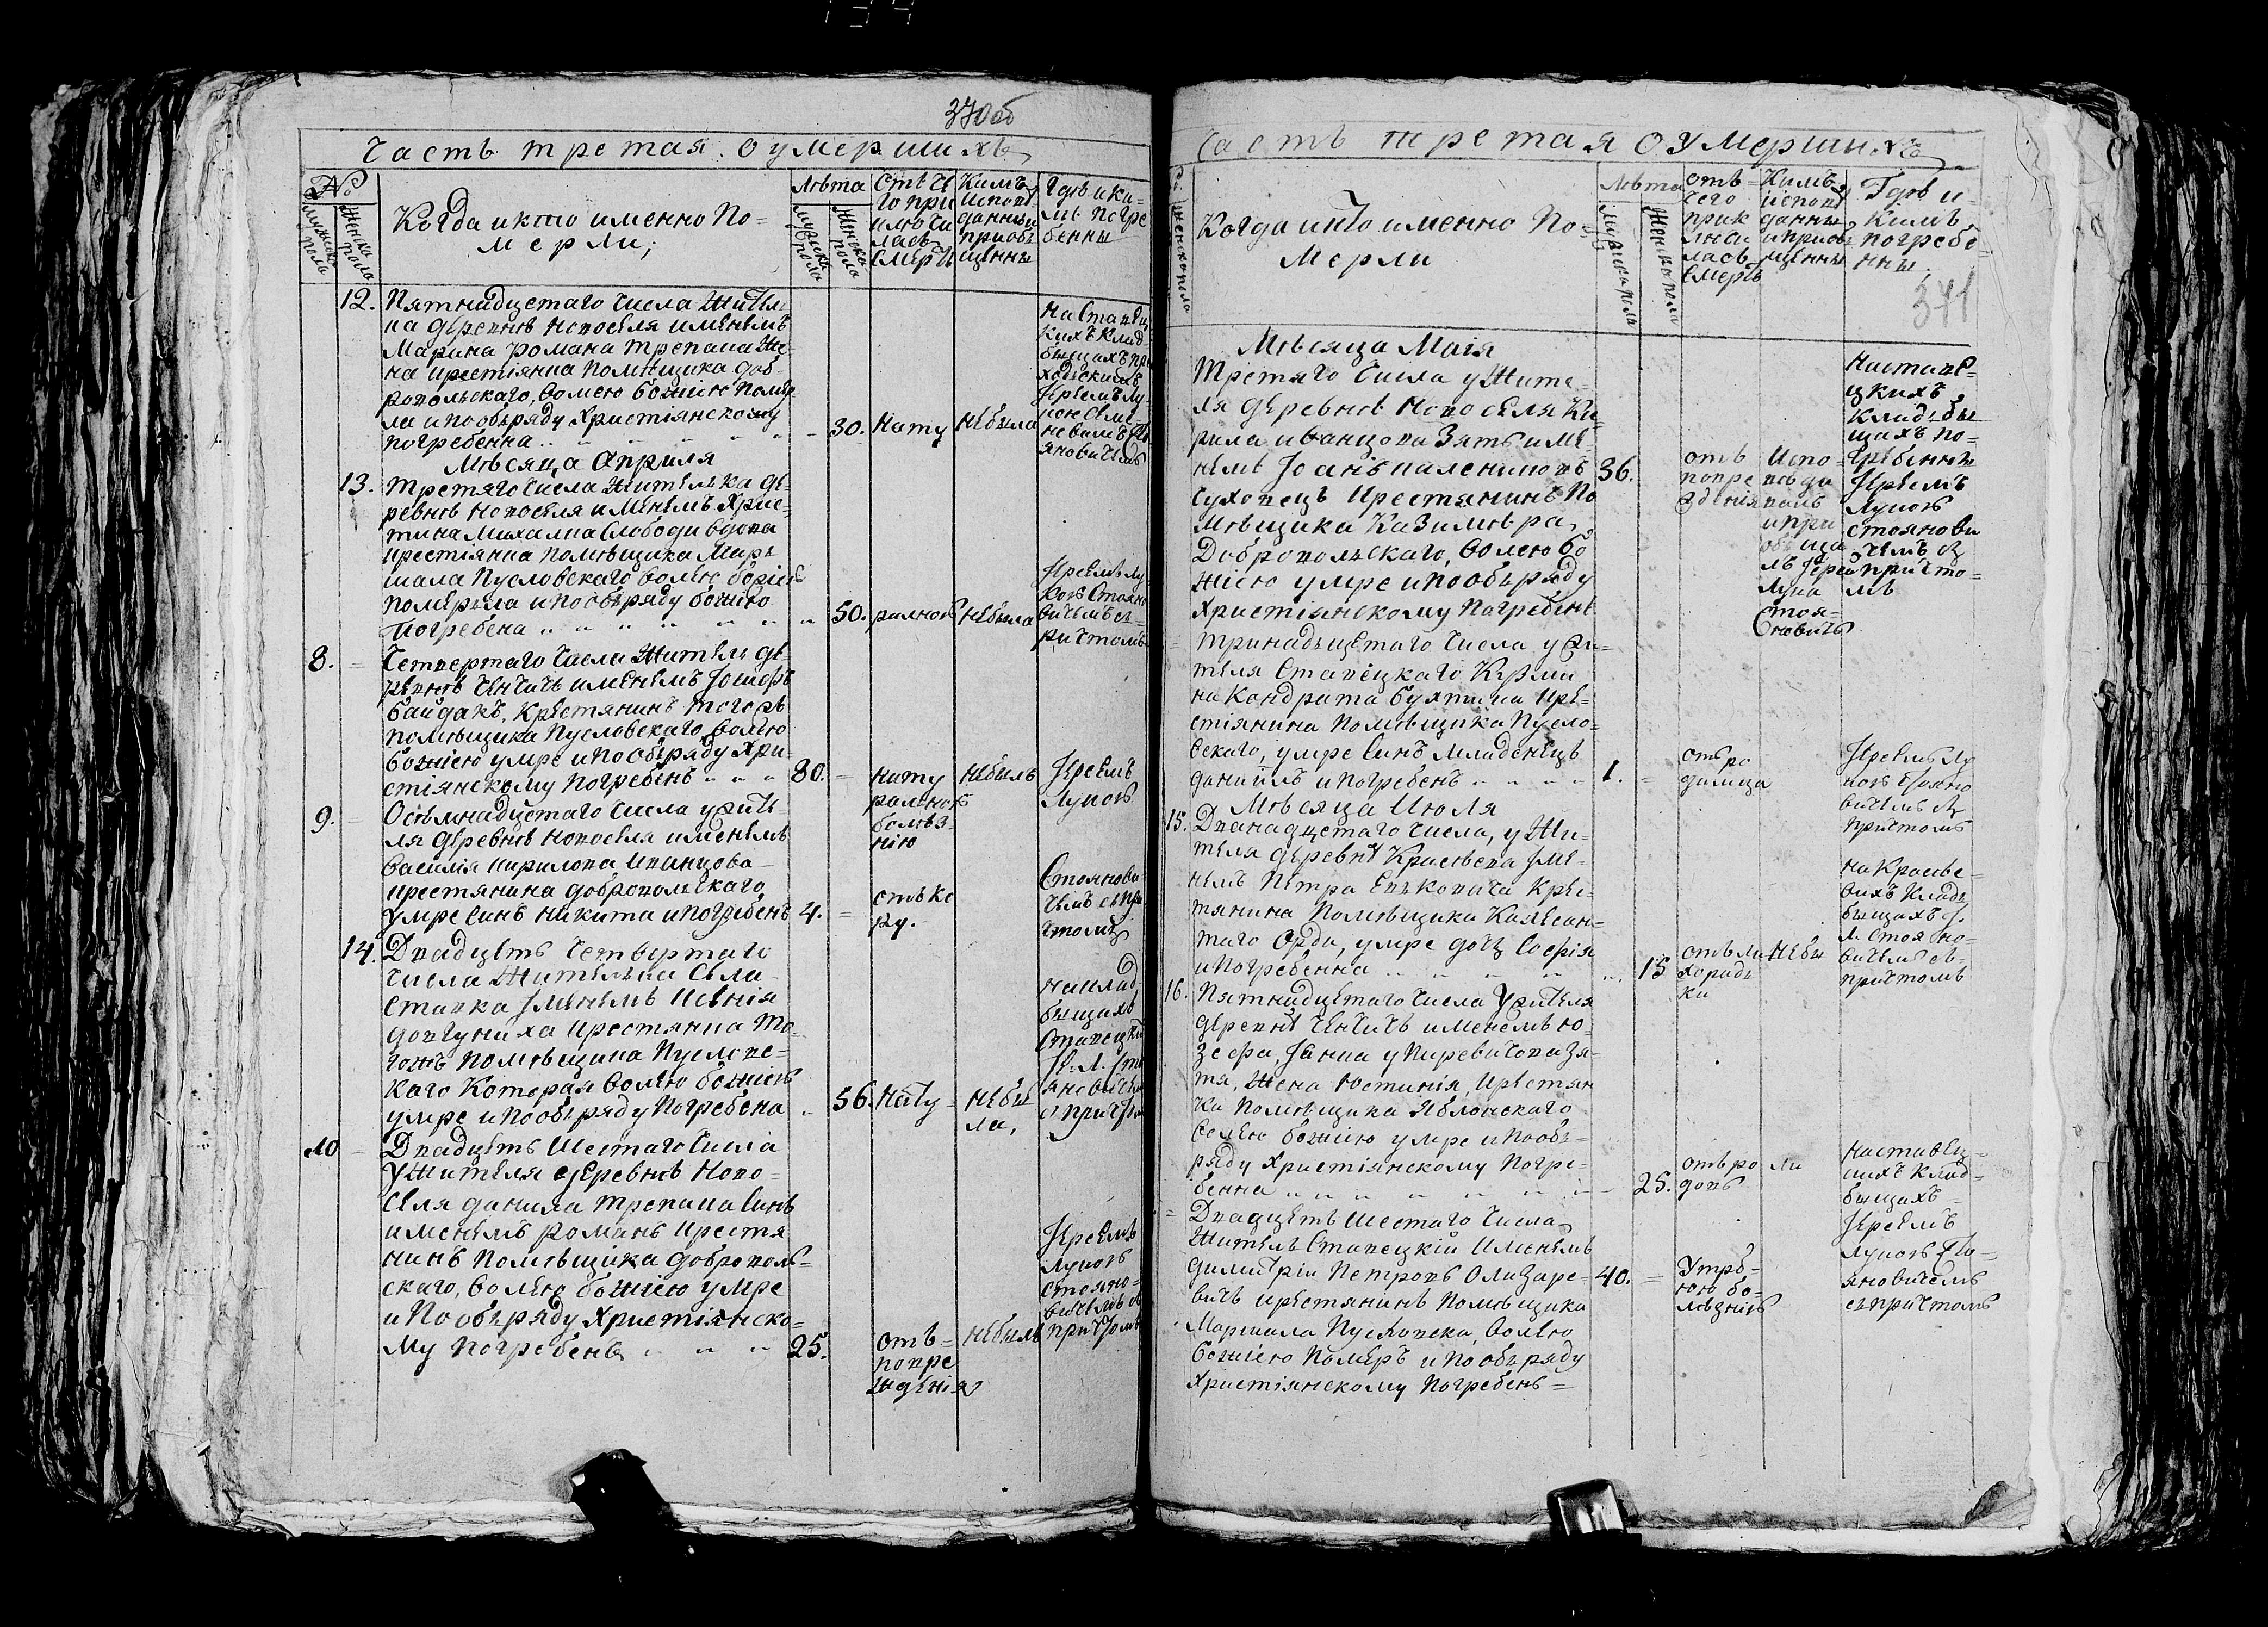 370об
Часть третая о умершихъ
№
мужска пола
женска пола
Когда и кто именно По-
мерли;
Лѣта
мужска пола
женска пола
Отъ че
го при
ключи
лась
смерть
Кимъ
исповѣ
данны и
приобъ
щенны
Гдѣ и ки-
мъ погре
бенны
12. Пятнадцетаго числа Жител
ка деревнѣ Новоселя именемъ
Марина Романа Трепача Же-
на крестянка Помѣщика доб-
ропольского, волею божіею Поме
ла и пообъряду Христіянскому
погребенна
30. Нату небыла
На Ставец
кихъ клад
бищахъ при
ходскихъ
Іереемъ Лу
кою
Мѣсяца Априля
13. Третяго числа Жителька де-
ревнѣ Новоселя именемъ Хрис-
тина Михалка Слободи вдова
крестіянка помѣщика Марь
шала Пусловского волею божіею
померла и пообъряду божію
Погребена
50. ралной Небыла
Іереемъ Лу
кою Стояно
вичемъ съ
притчомъ
8. Четвертаго числа Житель де-
ревнѣ Ченчичъ именемъ Іосифъ
байдакъ, Крестянинъ тогожъ
помѣщика Пусловского, волею
божіею умре и пообъряду Хри
стіянскому Погребенъ
80. нату
ралною
болѣз-
нію
Небылъ
Іереемъ
Лукою
9. Осѣмнадцетаго числа у жите
ля деревнѣ Новоселя именемъ
Василія Кирилова Иванцова
крестянина добропольского
умре синъ Никита и погребенъ
4. отъ ко
ру.
Стоянови
чемъ съ при
чтомъ
14. Двадцеть Четвертаго
числа Жителька Села
Ставка Именемъ Ксенія
Крестянка то-
гожъ помѣщика Пуслове-
каго Которая волею божіею
умре и пообъряду Погребена
56. Нату небы
ла,
на клад
бищахъ
Ставецки
10 Двадцеть Шестаго Числа
У Жителя деревнѣ Ново-
селя данила Трепача Синъ
именемъ Романъ Крестя
нинъ помѣщика доброполь-
скаго, волею божіею умре
и Пообъряду Христіянско-
му Погребенъ
25. отъ
повре
жденія
небылъ
Іереемъ
Лукою
Стояно-
вичемъ съ
притчомъ
Часть третая О умершихъ
женска пола
Когда и кто именно По-
мерли
Лѣта
мужска пола
женска пола
отъ
чего
прик
лючи
лась
смерть
Кимъ
исповѣ
данны
и приоб
щенны
Гдѣ и
Кимъ
погребе-
нны
371
Мѣсяца Маія
Третяго числа у Жите-
ля деревнѣ Новоселя Ки-
рила иванцова Зять име-
немъ Іоанъ
Суховецъ Крестянинъ По
мѣщика Казимѣра
Добропольскаго, волею бо
жіею умре и пообъряду
Христіянскому Погребенъ
36. отъ
повре
жденія
Испо-
вѣда
палъ
и при
обща
лъ Іерей
Лука
Стоя-
новичъ
На ставе-
цкихъ
кладьби
щахъ по-
гребеннъ
Іереемъ
Лукою
Стоянови
чемъ съ
притчо-
мъ
Тринадьцетаго числа у жи-
теля Ставецкаго Кузми
на Кондрата Кре-
стіянина помѣщика Пусло-
вскаго, умре Синъ младенецъ
даніилъ и погребенъ
1. отъ ро
димца
Іереемъ Лу
кою Стояно
вичемъ съ
притчомъ
Мѣсяца Июля
15. Двананадцетаго числа, у Жи-
теля деревнѣ Красѣева Име-
немъ Петра Крес-
тянина Помѣщика Каясан-
таго Орди, умре дочъ Софія
и погребенна
15 отъ ли
хорадь
ки
Небы
на Красѣе-
вихъ Кладь
бищахъ І.
Л. Стояно-
вичемъ съ
притчомъ
16. Пятнадцетаго числа У жителя
деревнѣ Ченчичъ именемъ Ю-
зефа, зя-
тя, Жена Юстинія, Крестян
ка помѣщика Яблонскаго
Волею божіею умре и пообъ-
ряду Христіянскому Погре-
бенна
25. отъ ро
довъ
на ставец-
кихъ клад-
бищахъ
Іереемъ
Лукою Сто-
яновичемъ
съ притчомъ
Двадцеть шестаго числа
Житель Ставецкій Именемъ
димитріи Петровъ Олизаре-
вичъ крестянинъ помѣщика
Маршала Пусловска, волею
божіею Померъ и пообъряду
Христіянскому Погребенъ
40. Утро-
ною бо-
лѣзнію